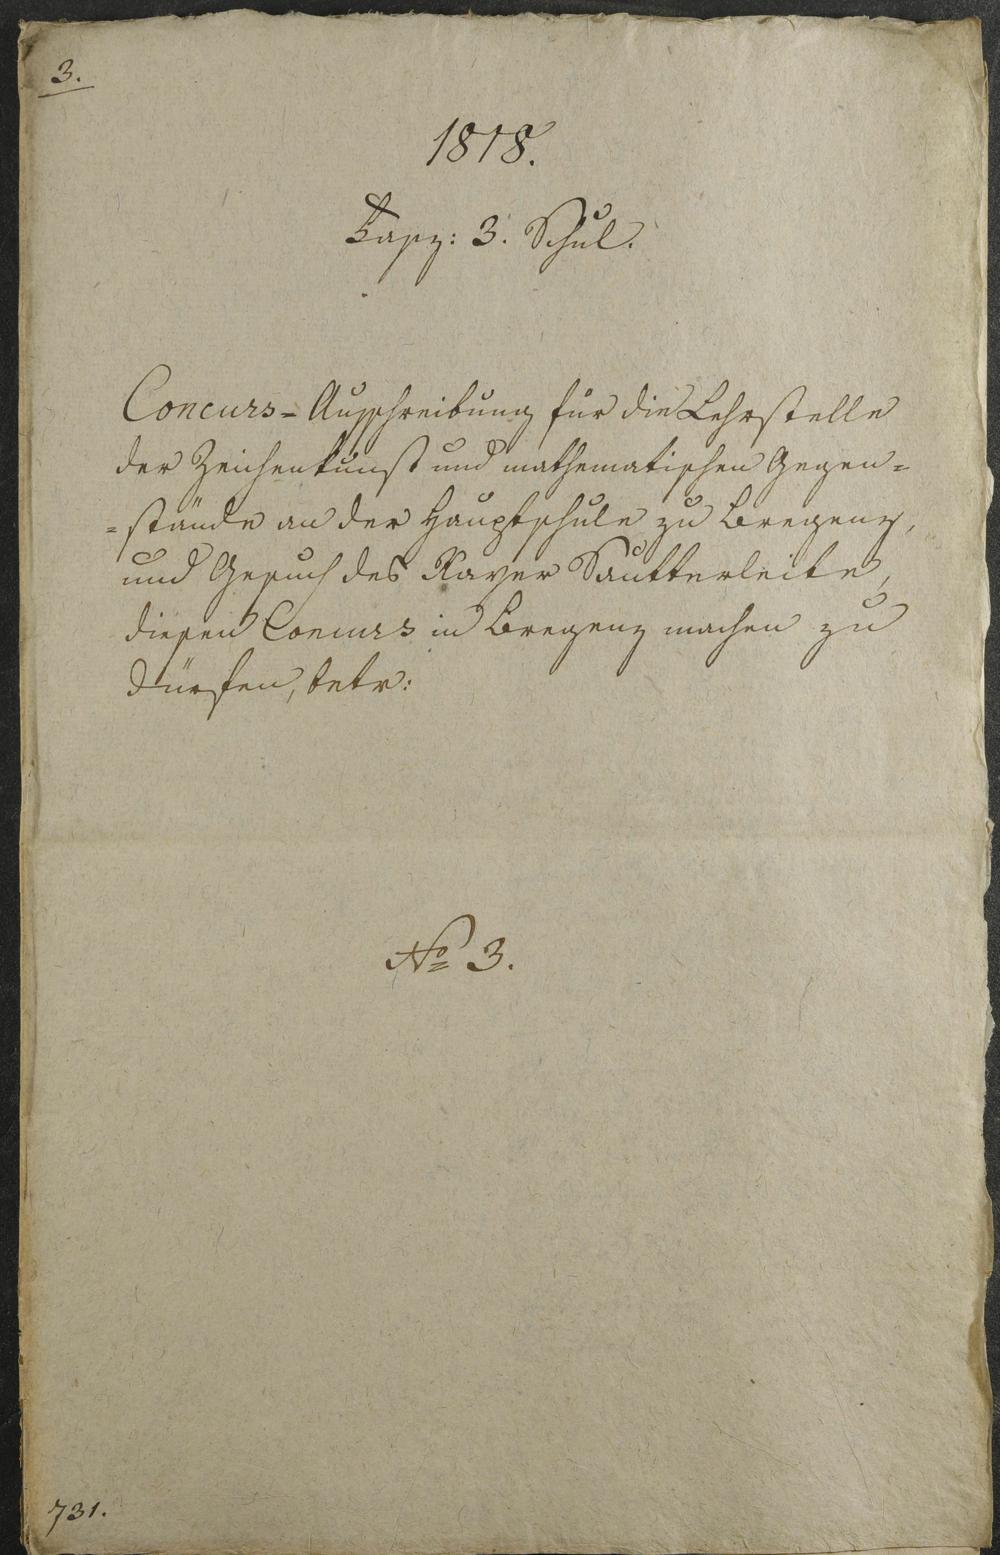 3.
1818.
Fasz: 3. Schul.
Concurs-Ausschreibung für die Lehrstelle
der Zeichenkunst und mathematischen Gegen=
=stände an der Hauptschule zu Bregenz,
und Gesuch des Xaver Sautterleite,
diesen Concurs in Bregenz machen zu
dürfen, betr:
No 3.
731.